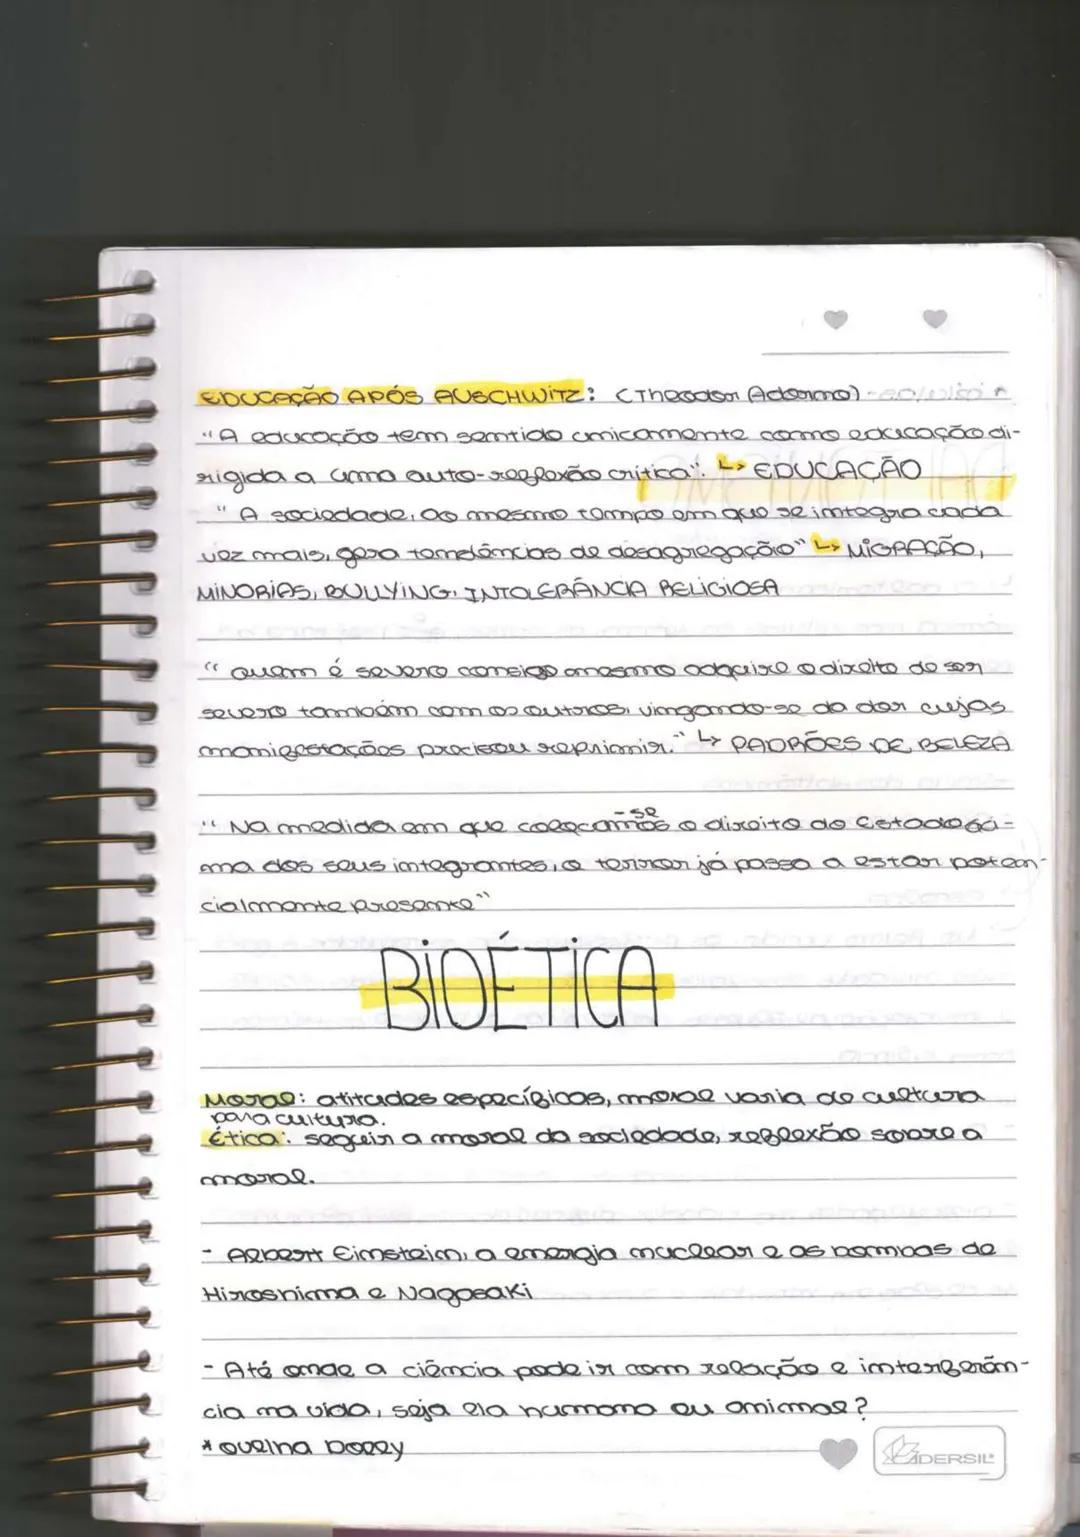 EDUCAÇÃO APÓS AUSCHWITZ: (Theodor Adorno)
"A educação tem sentido unicamente como educação di-
rigida a uma auto-reflexão crítica". ↳ EDUCAÇÃO
" A sociedade, ao mesmo tempo em que se integra cada
vez mais, gera tendências de desagregação" ↳ MIGRAÇÃO,
MINORIAS, BULLYING, INTOLERÂNCIA RELIGIOSA
" Quem é severo consigo mesmo adquire o direito de ser
severo também com os outros, vingando-se da dor cujas
manifestações precisou reprimir." ↳ PADRÕES DE BELEZA
-se
" Na medida em que colocamos o direito do Estado aci-
ma dos seus integrantes, o terror já passa a estar poten-
cialmente presente"
BIOÉTICA
Moral: atitudes específicas, moral varia de cultura
para cultura.
Ética: seguir a moral da sociedade, reflexão sobre a
moral.
- Albert Einstein, a energia nuclear e as bombas de
Hiroshima e Nagasaki
- Até onde a ciência pode ir com relação e interferên-
cia na vida, seja ela humana ou animal?
* ovelha Dolly
ADERSIL